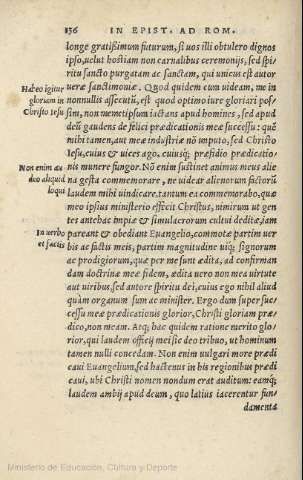 156 IN EPIST. AD ROM.
longe gratißimum futurum, si uos illi obtulero dignos
ipso, uelut hostiam non carnalibus ceremonijs, sed spi-
ritu sancto purgatam ac sanctam, qui unicus est autor
ueræ sanctimoniæ. Quod quidem cum uideam, me in
Habeo igitur
gloriam in
Christo Iesu
nonnullis assecutū, est quod optimo iure gloriari pos-
sim, non memetipsum iactans apud homines, sed apud
deū gaudens de felici prædicationis meæ successu: quē
mihi tamen, aut meæ industriæ nō imputo, sed Christo
Iesu, cuius & uices ago, cuiusq; præsidio prædicatio-
nis munere fungor. Nō enim sustinet animus meus alie
Non enim au-
deo aliquid
loqui
na gesta commemorare, ne uidear alienorum factorū
laudem mihi uindicare. tantum ea commemorabo, quæ
meo ipsius ministerio effecit Christus, nimirum ut gen
tes antehac impiæ & simulacrorum cultui deditæ, iam
In uerbo
et factis
pareant & obediant Euangelio, commotæ partim uer
bis ac factis meis, partim magnitudine uiq; signorum
ac prodigiorum, quæ per me sunt ædita, ad confirman
dam doctrinæ meæ fidem, ædita uero non mea uirtute
aut uiribus, sed autore spiritu dei, cuius ego nihil aliud
quàm organum sum ac minister. Ergo dum super suc-
cessu meæ prædicationis glorior, Christi gloriam præ-
dico, non meam. Atq; hac quidem ratione merito glo-
rior, qui laudem officij mei sic deo tribuo, ut hominum
tamen nulli concedam. Non enim uulgari more prædi
caui Euangelium, sed hactenus in his regionibus prædi
caui, ubi Christi nomen nondum erat auditum: eamq;
laudem ambij apud deum, quo latius iacerentur fun-
damenta
Ministerio de Educación, Cultura y Deporte